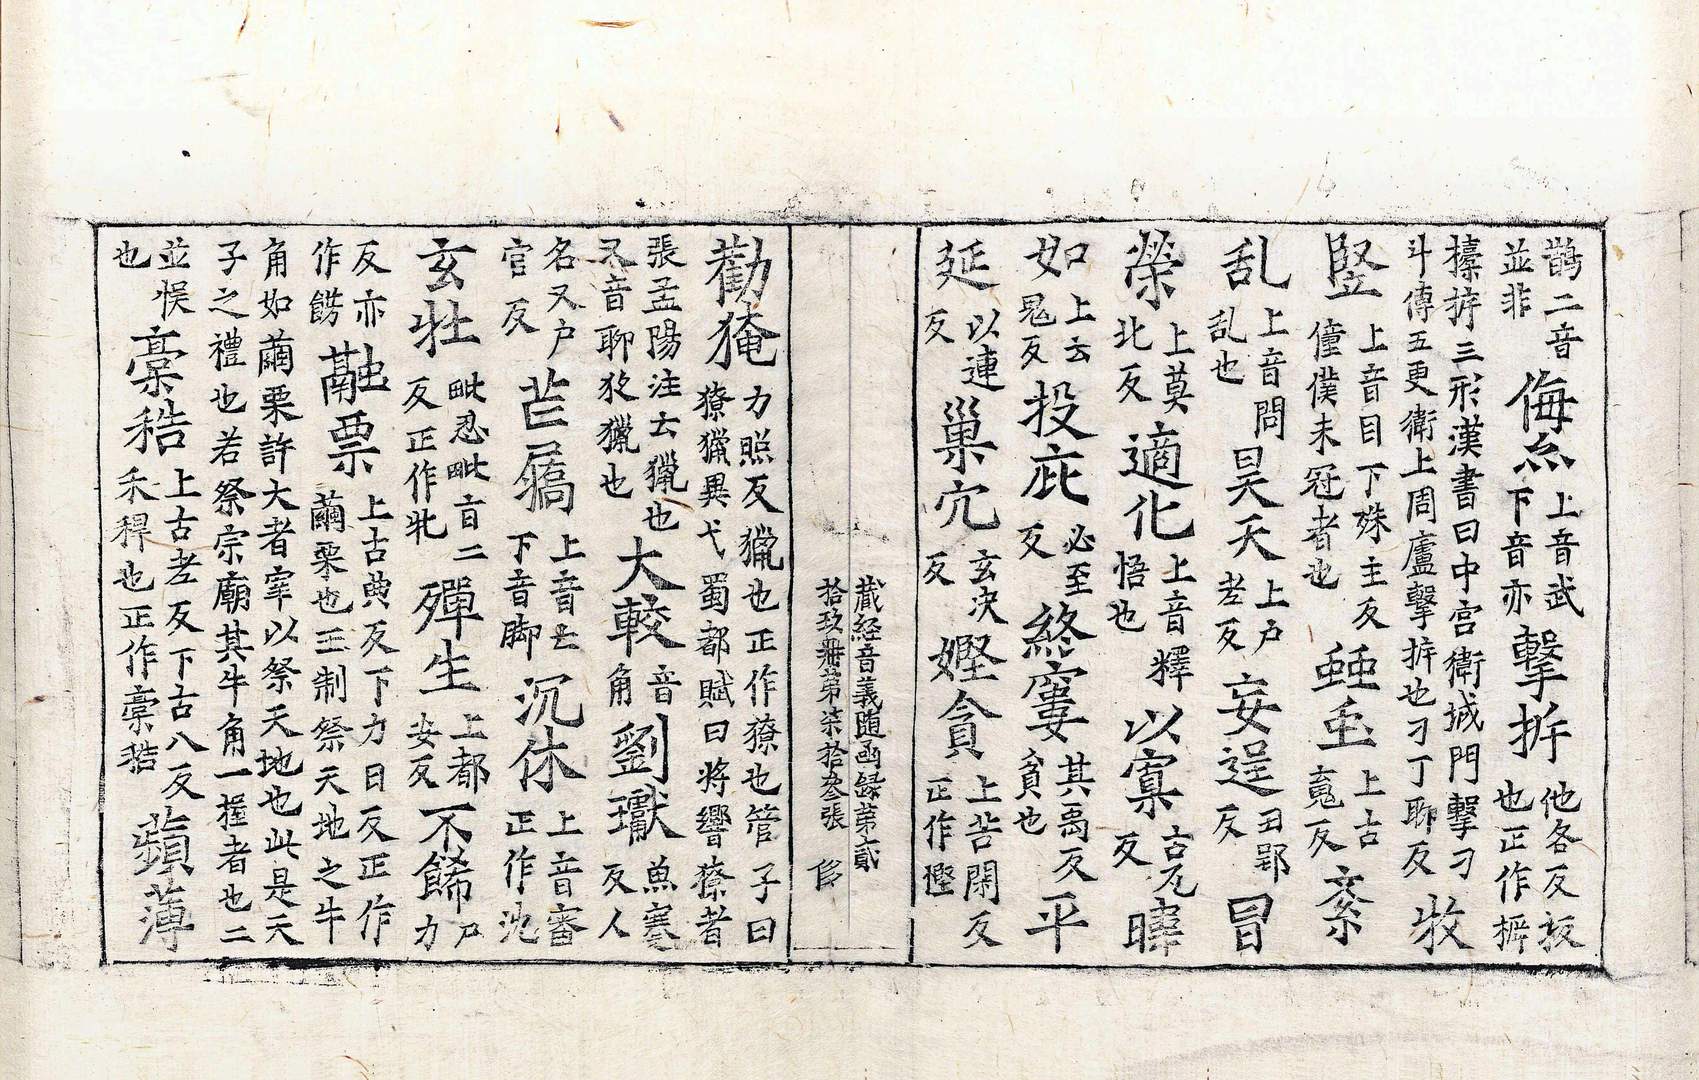 鹊二音
並非
侮𠅘
上音武
下音亦
擊㭊
他各反扳
也正作㭊
㯱㭊三形漢書曰中宮衛城門擊刁
斗傳五更衛上周廬擊㭊也刁丁聊反
牧
竪
上音目下殊主反
僮僕未冠者也
蛊
上古
䰟反
紊
乱
上音問
乱也
昊天
上户
老反
妄逞
丑郢
反
冒
榮
上莫
北反
適化
上音釋
悟也
以寡
古瓦
反
暐
如
上云
鬼反
投庇
必至
反
終寠
其禹反
貧也
平
延
以連
反
巢穴
玄决
反
慳貪
上苦閑反
正作慳
藏経音義随函録第貳
拾玖冊第柒拾叁張
勸㹣
力照反獵也正作獠也管子曰
獠獵異弋蜀都賦曰将響獠者
張孟陽注云獵也
又音聊狡獵也
大較
音
角
劉瓛
魚蹇
反人
名又户
官反
芒屩
上音亡
下音脚
沉休
上音審
正作沈
玄牡
毗忍毗盲二
反正作牝
殫生
上都
安反
不餙
尸
力
反亦
作餝
融票
上古典反下力日反正作
繭栗也王制祭天地之牛
角如繭栗許大者宰以祭天地也此是天
子之禮也若祭宗廟其牛角一握者也二
並悮
也
稾秸
上古老反下古八反
禾稈也正作稾秸
蘋薄